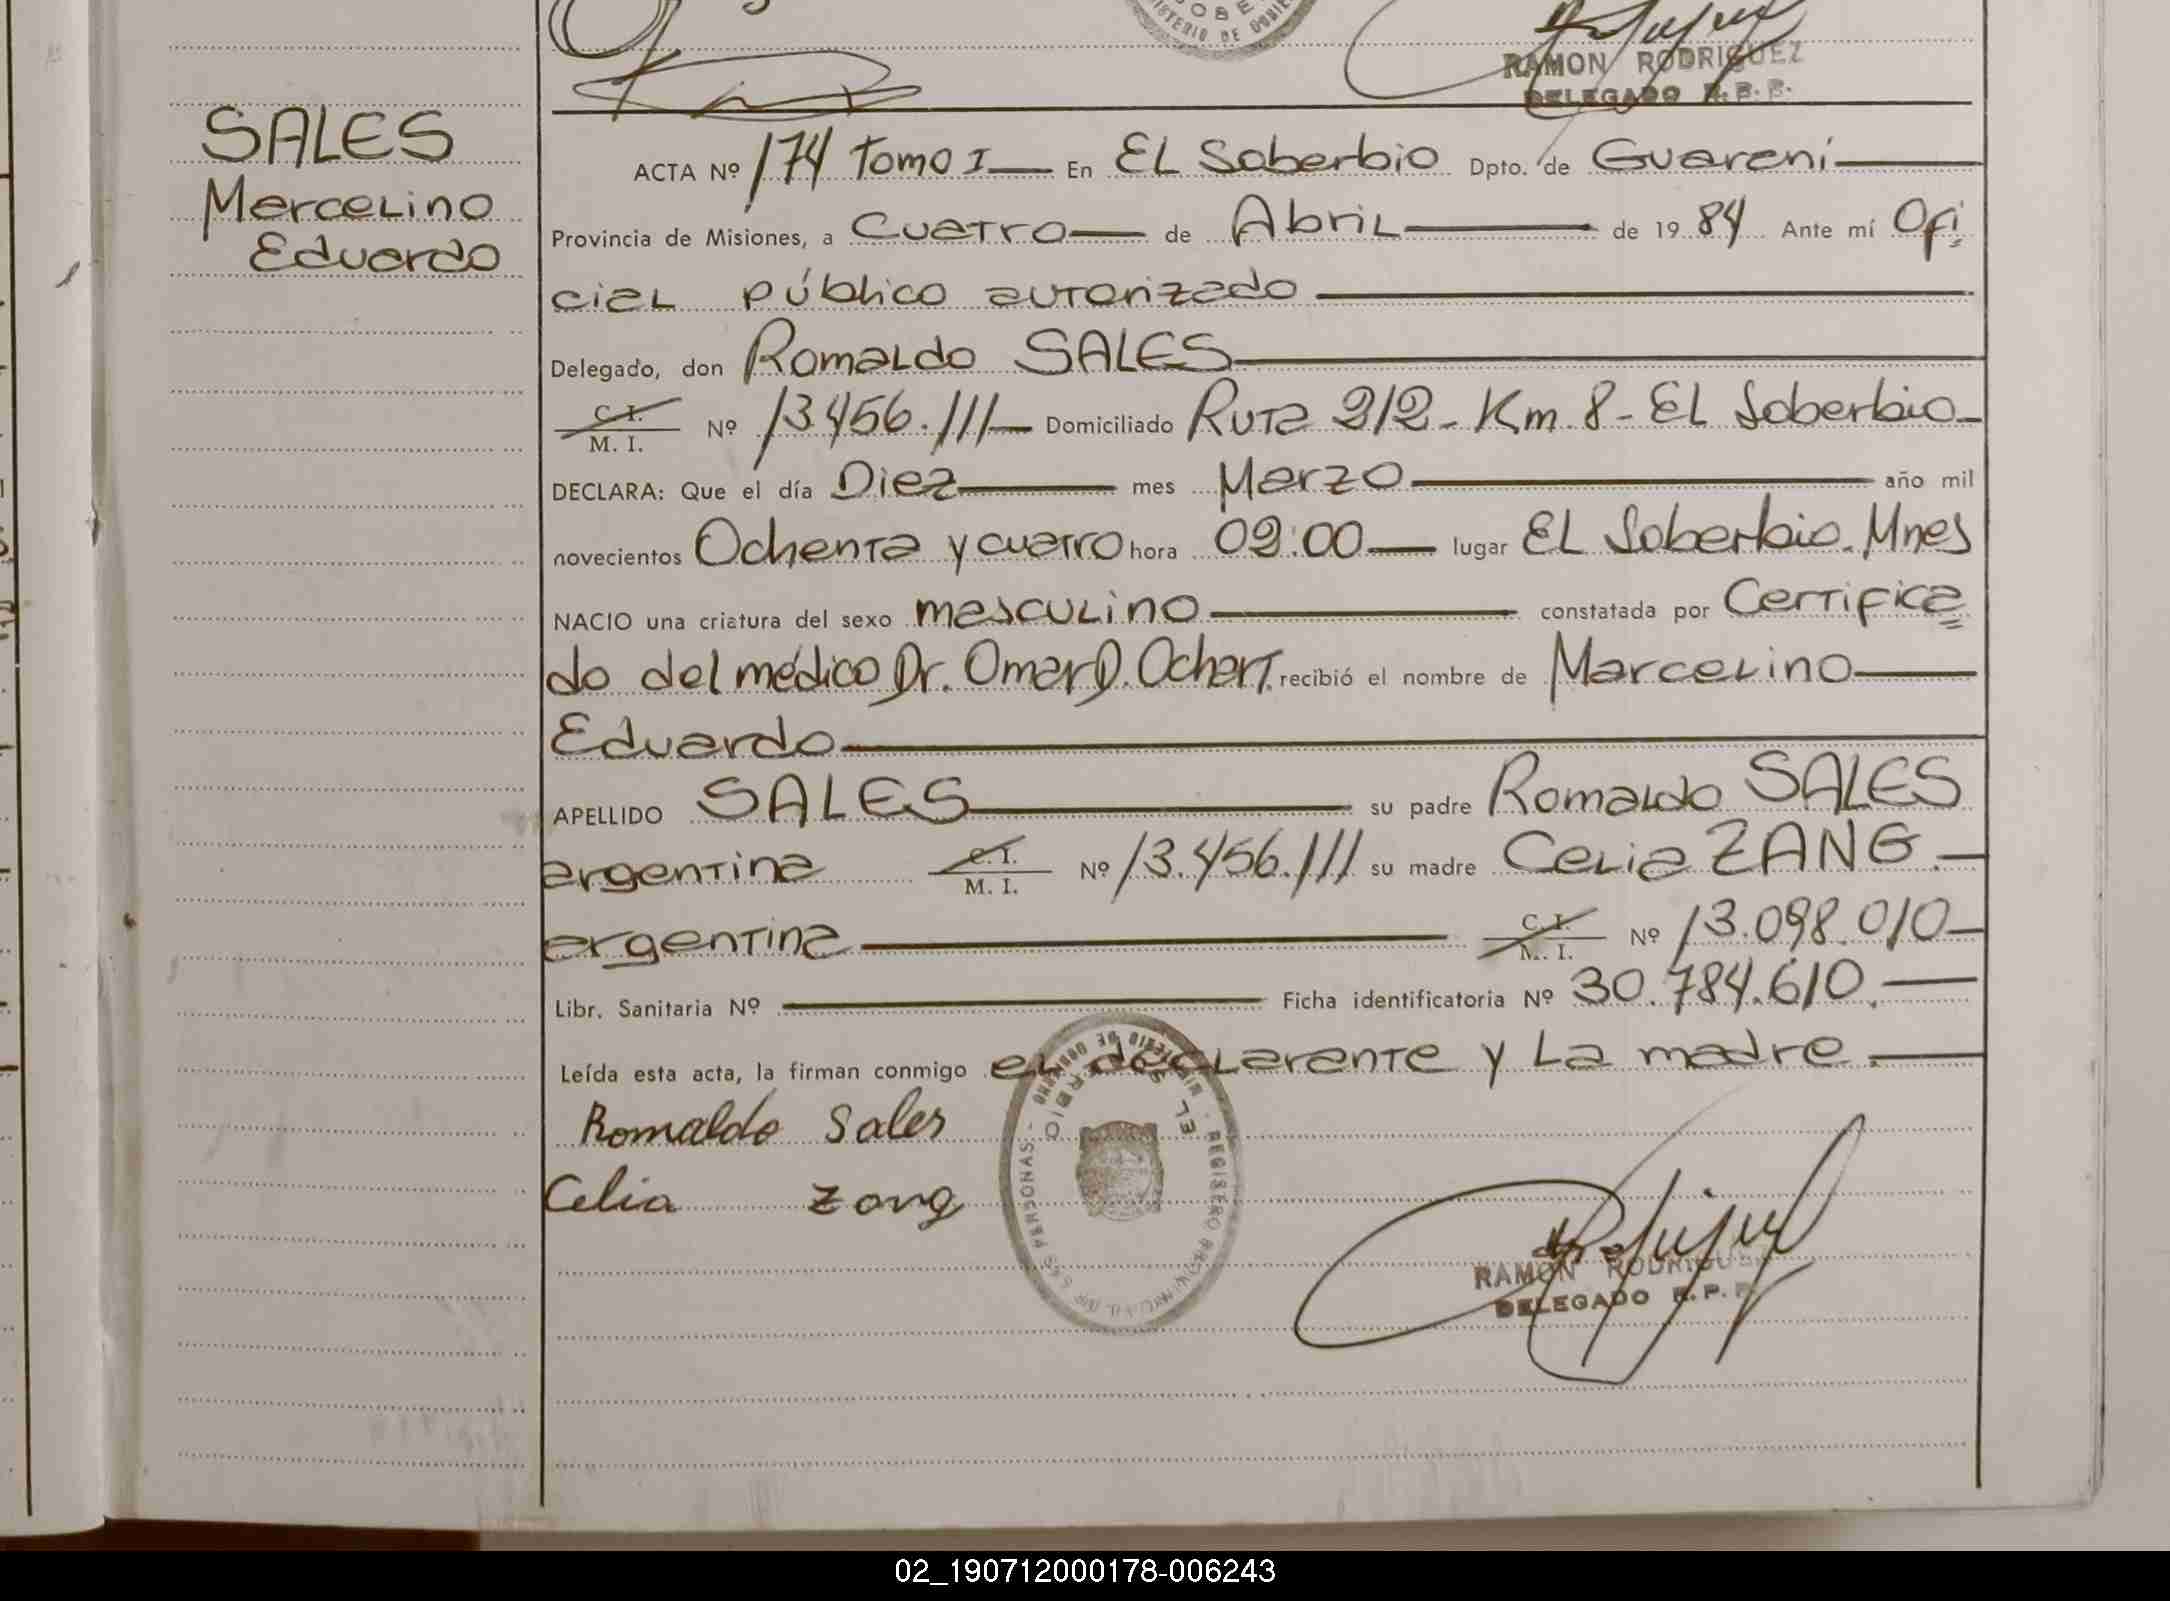 RAMON RODRIGUEZ
DELEGADO R.P.P.
SALES
Marcelino
Eduardo
ACTA Nº 174 Tomo I En EL Soberbio Dpto. de Guaraní
Provincia de Misiones, a Cuatro de Abril de 19 84 Ante mí Ofi
cial público autorizado
Delegado, don Romaldo SALES
C. I.
M. I. Nº 13.456.111 Domiciliado Ruta 212 - Km. 8 - EL Soberbio
DECLARA: Que el día Diez mes Marzo año mil
novecientos Ochenta y cuatro hora 09:00 lugar EL Soberbio. Mnes
NACIO una criatura del sexo masculino constatada por Certifica
do del médico Dr. Omar D. Ochert. recibió el nombre de Marcelino
Eduardo
APELLIDO SALES su padre Romaldo SALES
argentina C. I.
M. I. Nº 13.456.111 su madre Celia ZANG.
argentina C. I.
M. I. Nº 13.098.010
Libr. Sanitaria Nº Ficha identificatoria Nº 30.784.610.
Leída esta acta, la firman conmigo el declarante y La madre.
Romaldo Sales
Celia Zang
REGISTRO PROVINCIAL DE LAS PERSONAS - MINISTERIO DE GOBIERNO
EL SOBERBIO
RAMON RODRIGUEZ
DELEGADO R.P.P.
02_190712000178-006243